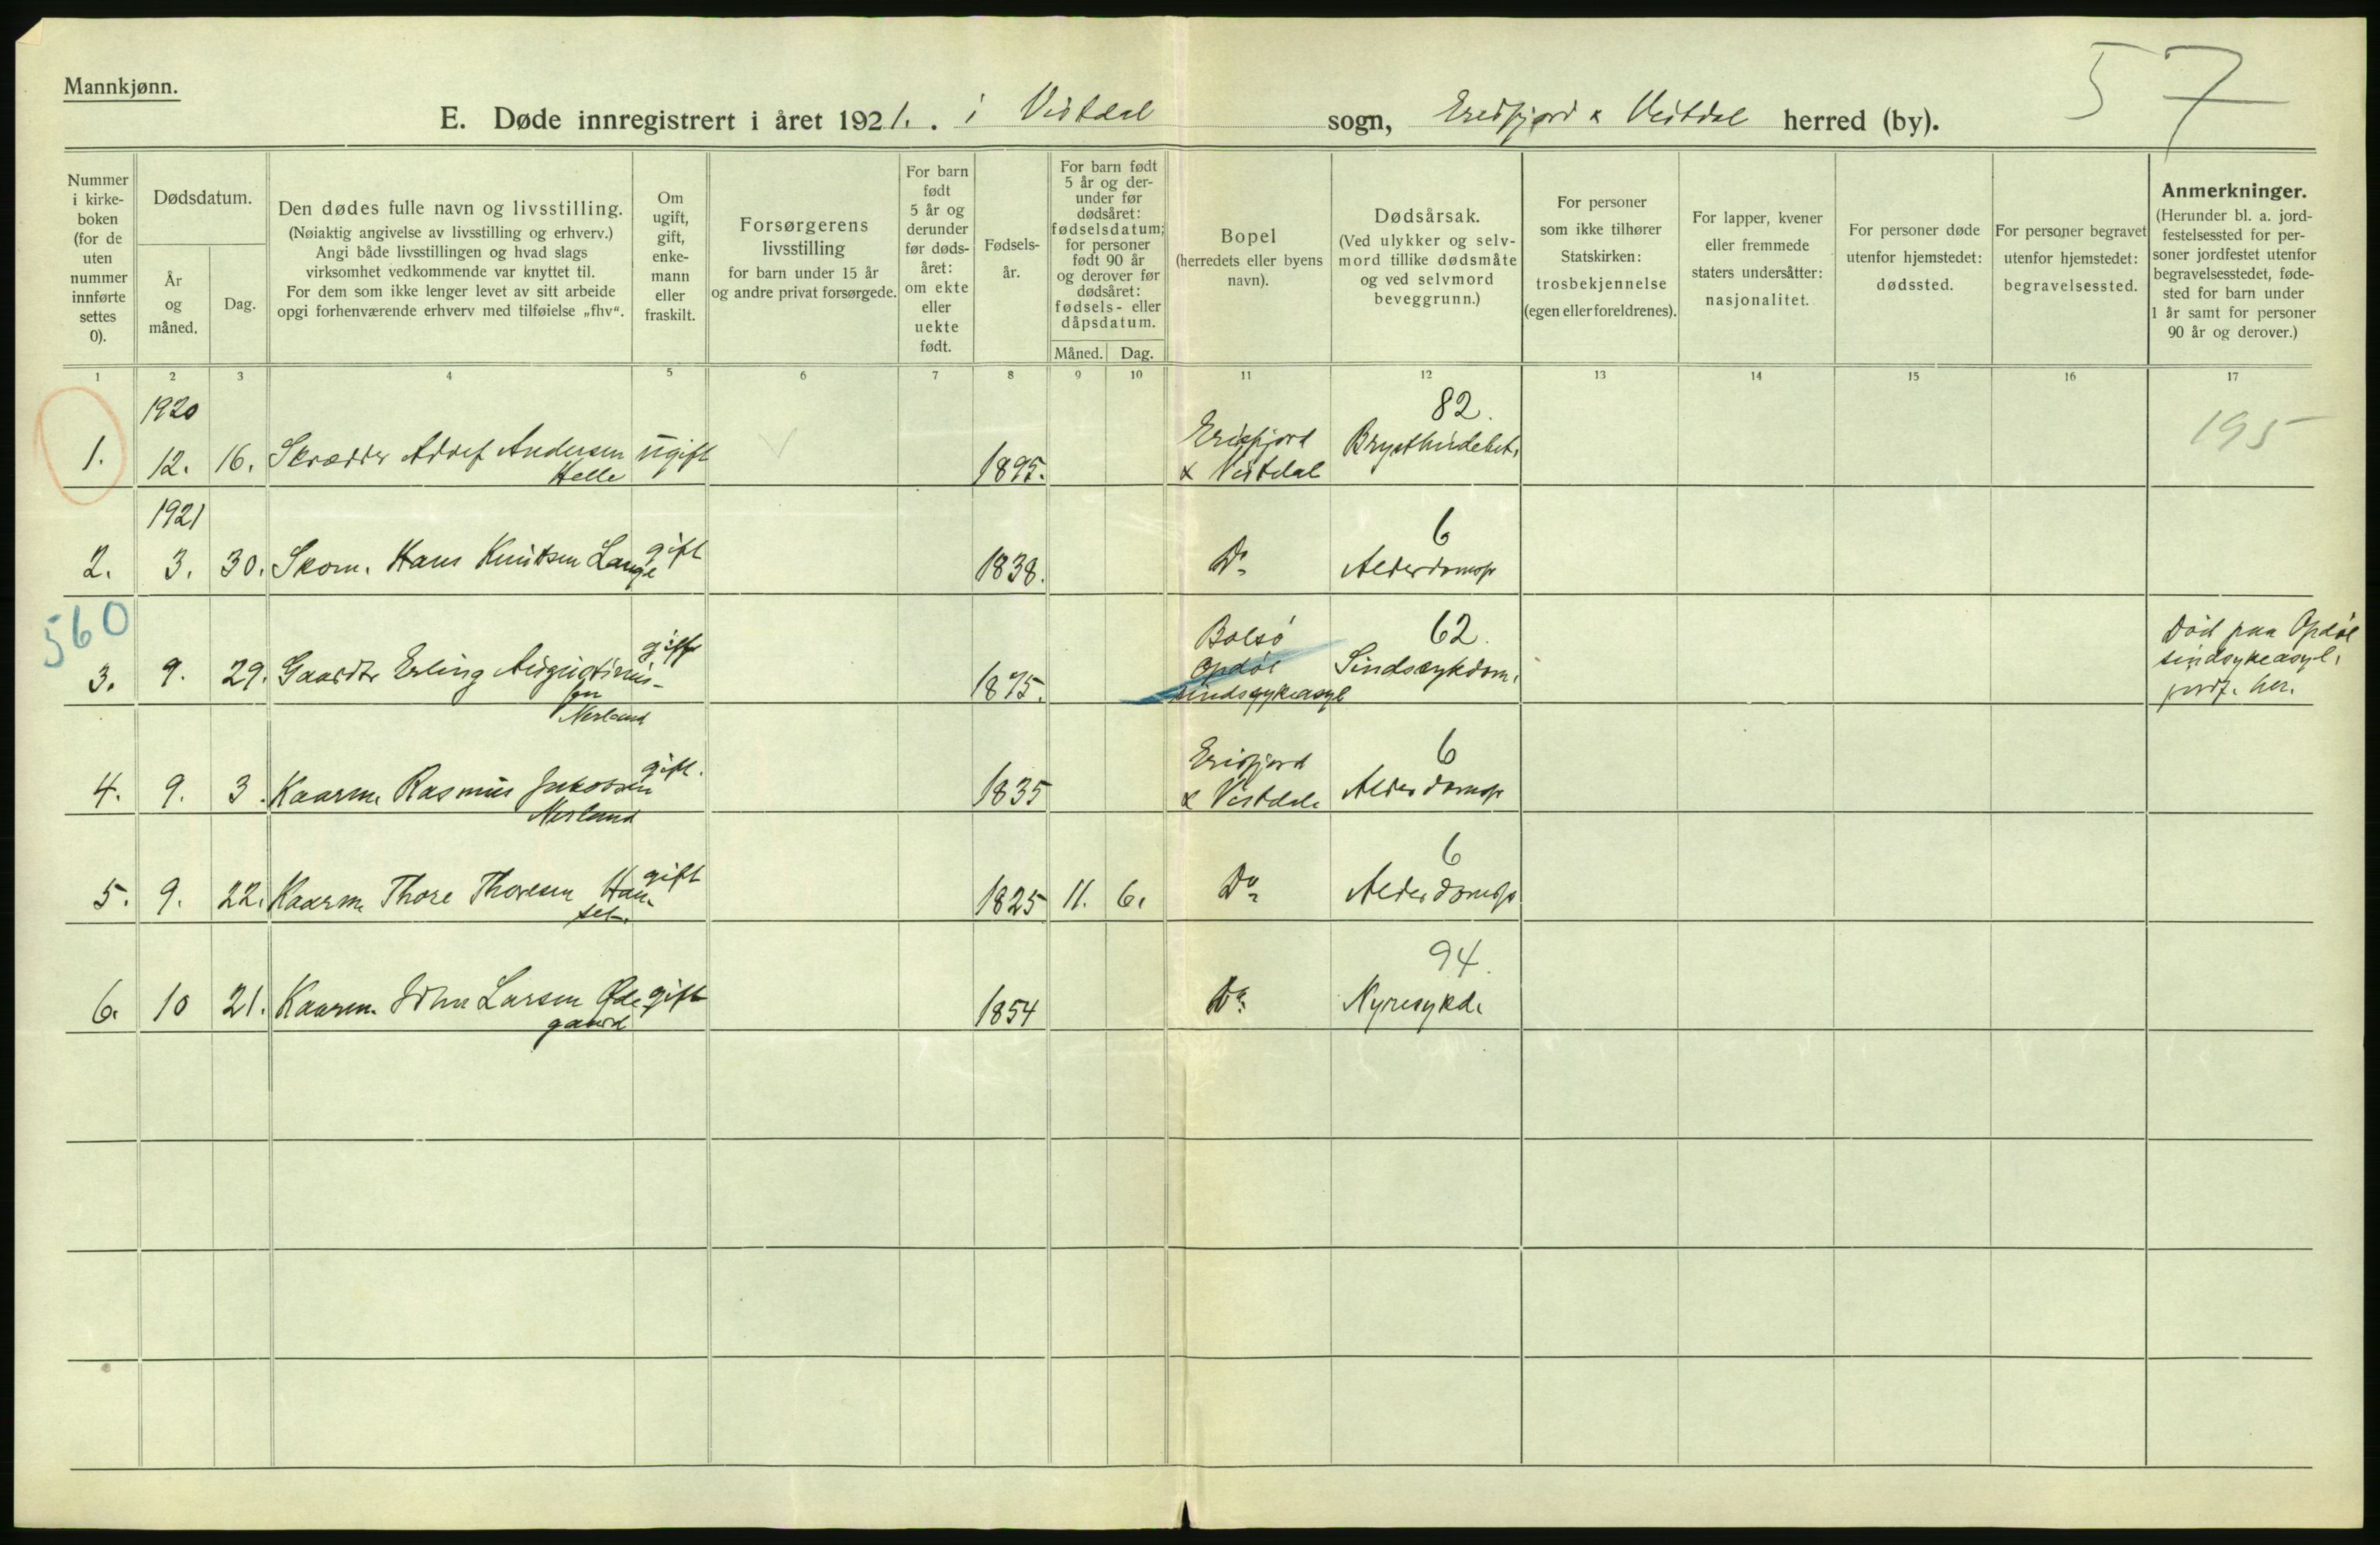 57
Mannkjønn.
E. Døde innregistrert i året 1921. i Vistdal sogn, Eresfjord & Vistdal herred (by).
Nummer i kirke- boken (for de uten nummer innførte settes 0).
Dødsdatum.
År og måned.
Dag.
Den dødes fulle navn og livsstilling.
(Nøiaktig angivelse av livsstilling og erhverv.)
Angi både livsstillingen og hvad slags
virksomhet vedkommende var knyttet til.
For dem som ikke lenger levet av sitt arbeide
opgi forhenværende erhverv med tilføielse „fhv“.
Om ugift, gift, enke- mann eller fraskilt.
Forsørgerens
livsstilling
for barn under 15 år
og andre privat forsørgede.
For barn født 5 år og derunder før døds- året: om ekte eller uekte født.
Fødsels- år.
For barn født 5 år og der- under før dødsåret: fødselsdatum; for personer født 90 år og derover før dødsåret: fødsels- eller dåpsdatum.
Måned. Dag.
Bopel
(herredets eller byens
navn).
Dødsårsak.
(Ved ulykker og selv-
mord tillike dødsmåte
og ved selvmord
beveggrunn.)
For personer
som ikke tilhører
Statskirken:
trosbekjennelse
(egen eller foreldrenes).
For lapper, kvener
eller fremmede
staters undersåtter:
nasjonalitet.
For personer døde
utenfor hjemstedet:
dødssted.
For personer begravet
utenfor hjemstedet:
begravelsessted.
Anmerkninger.
(Herunder bl. a. jord-
festelsessted for per-
soner jordfestet utenfor
begravelsesstedet, føde-
sted for barn under
1 år samt for personer
90 år og derover.)
1 2 3 4 5 6 7 8 9 10 11 12 13 14 15 16 17
1920 82.
1. 12. 16. Skrædder Adolf Andersen Helle ugift 1895. Erisfjord & Vistdal Brysthindebet. 195
1921 6
2. 3. 30. Skom. Hans Knutsen Lange gift 1838. Do Alderdomsp
560 62.
3. 9. 29. Gaardbr Erling Augustinus- sen Nerland gift 1875. Bolsø Opdøl sindssykeasyl Sindssykdom. Død paa Opdøl sindsykeasyl. jordf. her.
6
4. 9. 3. Kaarm. Rasmus Jakobsen Nerland gift. 1835 Erisfjord & Vistdal. Alderdomsp
6
5. 9. 22. Kaarm. Thore Thoresen Hau- set. gift 1825 11. 6. Do Alderdomsp
94.
6. 10 21. Kaarm. John Larsen Øde gaard gift 1854 Do Nyresykd.